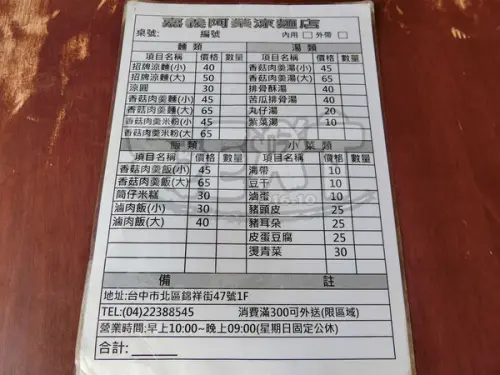 嘉義阿榮涼麵店
桌號: 編號 內用 □ 外帶 □
麵類 湯類
項目名稱 價格 數量 項目名稱 價格 數量
招牌涼麵(小) 40 香菇肉羹湯(小) 45
招牌涼麵(大) 50 香菇肉羹湯(大) 65
涼圓 30 排骨酥湯 40
香菇肉羹麵(小) 45 苦瓜排骨湯 40
香菇肉羹麵(大) 65 丸仔湯 20
香菇肉羹米粉(小) 45 紫菜湯 10
香菇肉羹米粉(大) 65
飯類 小菜類
項目名稱 價格 數量 項目名稱 價格 數量
香菇肉羹飯(小) 45 海帶 10
香菇肉羹飯(大) 65 豆干 10
筒仔米糕 30 滷蛋 10
滷肉飯(小) 30 豬頭皮 25
滷肉飯(大) 40 豬耳朵 25
皮蛋豆腐 25
燙青菜 30
備註
地址:台中市北區錦祥街47號1F
TEL:(04)22388545 消費滿300可外送(限區域)
營業時間:早上10:00~晚上09:00(星期日固定公休)
合計:______